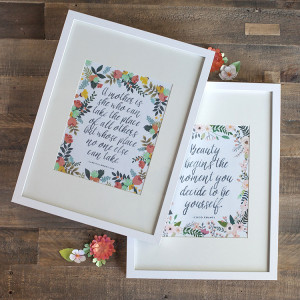 A mother is
she who can
take the place
of all others
but whose place
no one else
can take.
Beauty
begins the
moment you
decide to be
yourself.